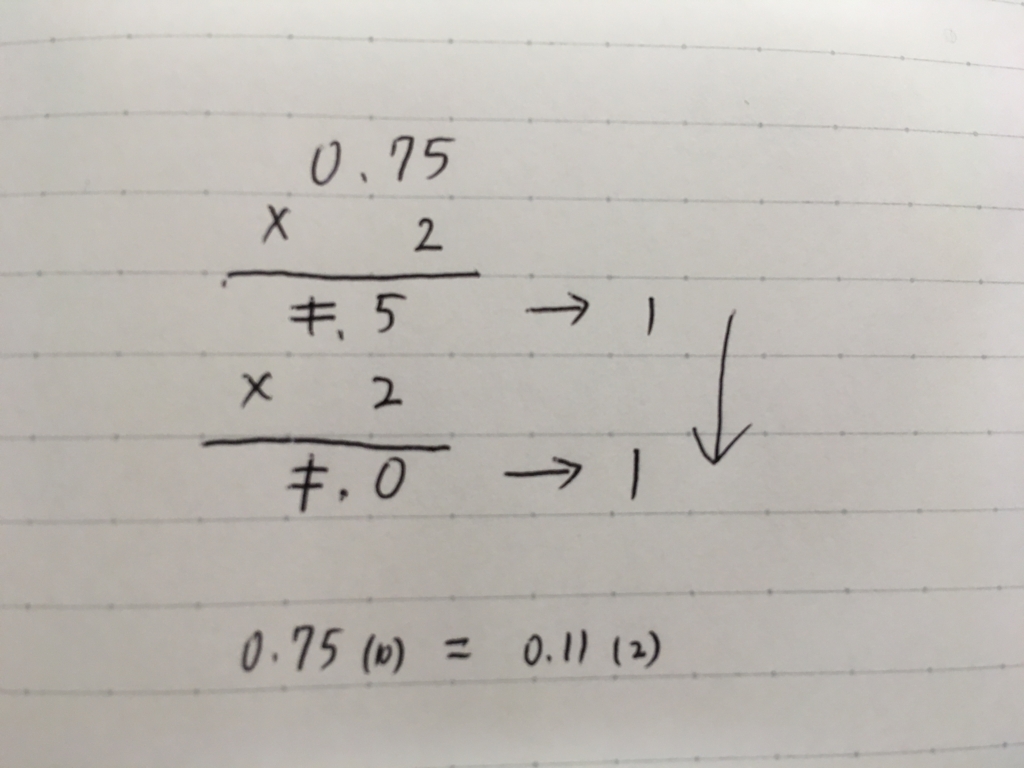 0.75
× 2
1.5 → 1
× 2
1.0 → 1
0.75 (10) = 0.11 (2)